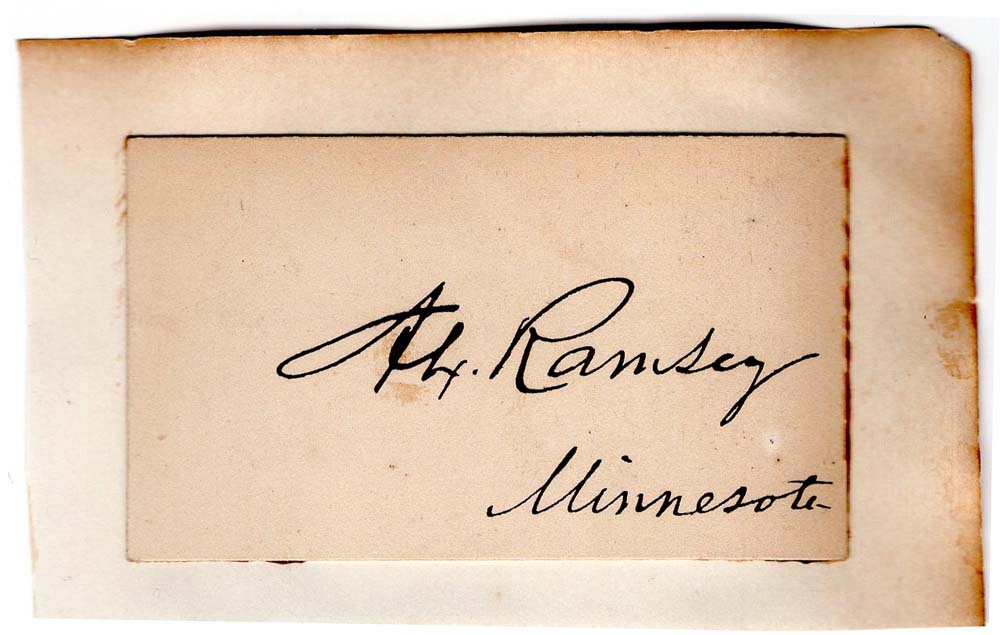 Alex. Ramsey
Minnesota